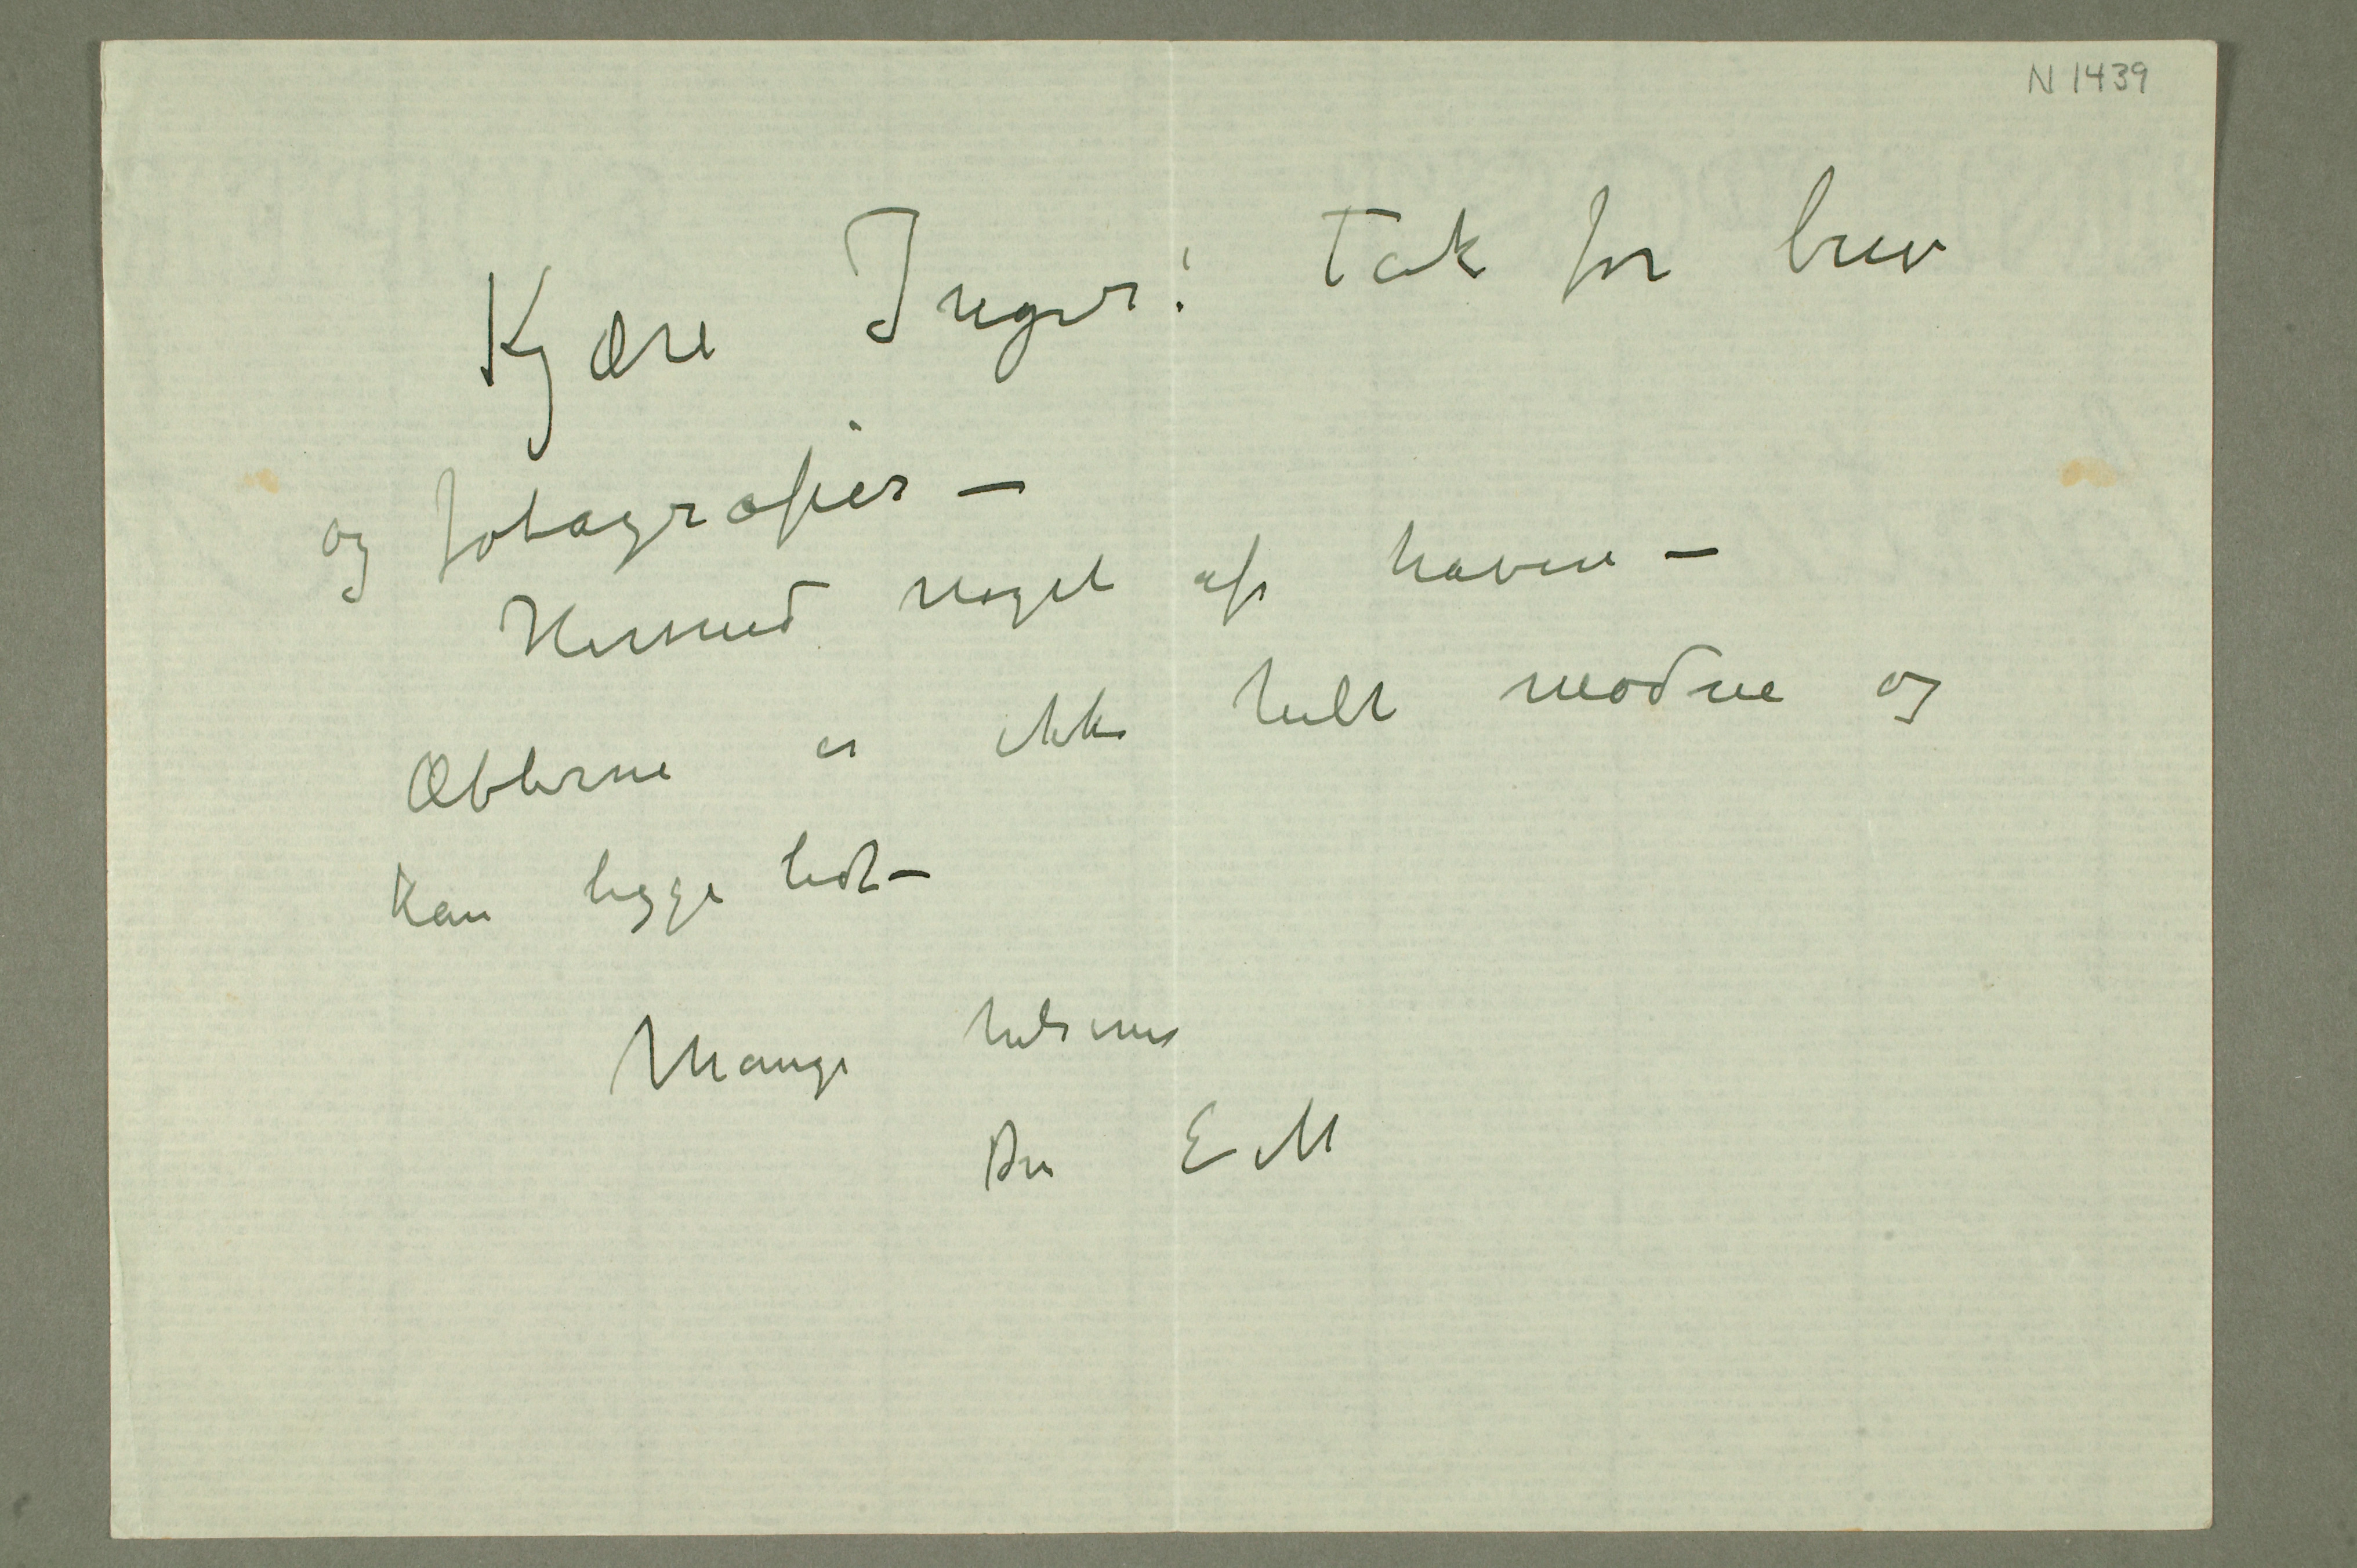 N 1439
Kjære Inger! Tak for brev
og fotografier –
Hermed noget af haven –
Æblerne er ikke helt modne og
kan ligge lidt –
Mange hilsener
Din E M